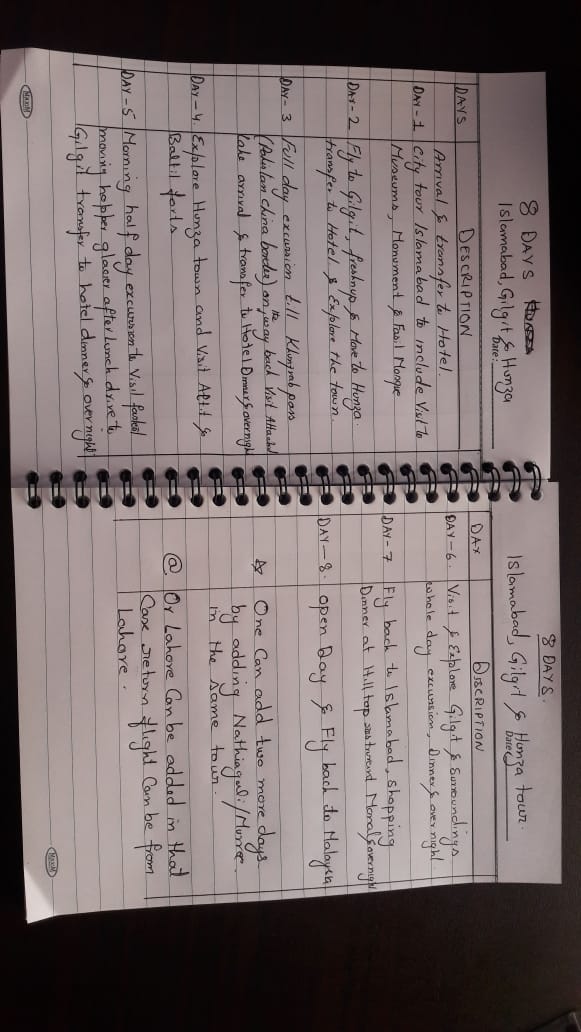 8 DAYS
Islamabad, Gilgit & Hunza
Date:
DAYS DESCRIPTION
Arrival & transfer to Hotel.
DAY-1 City tour Islamabad to include Visit to
Museums, Monument & Fasil Mosque
DAY-2 Fly to Gilgit, freshup & Move to Hunza.
transfer to Hotel & Explore the town.
DAY-3 Full day excursion till Khunjrab pass
(Pakistan china border) on the way back Visit Attabad
Lake arrival & transfer to Hotel Dinner & overnight
DAY-4. Explore Hunza town and Visit Altit &
Baltit forts
DAY-5 Morning half day excursion to Visit fastest
moving hopper glacier after Lunch drive to
Gilgit transfer to hotel dinner & overnight
8 DAYS.
Islamabad, Gilgit & Hunza tour.
Date:
DAY DISCRIPTION
DAY-6. Visit & Explore Gilgit & Surroundings
whole day excursion, Dinner & overnight.
DAY-7 Fly back to Islamabad, shopping
Dinner at Hill top restaurant Monal & overnight
DAY-8. open Day & Fly back to Malaysia
☆ One Can add two more days
by adding Nathiagali/Murree.
in the same tour.
@ Or Lahore Can be added in that
Case return flight Can be from
Lahore.
MAXIM
MAXIM